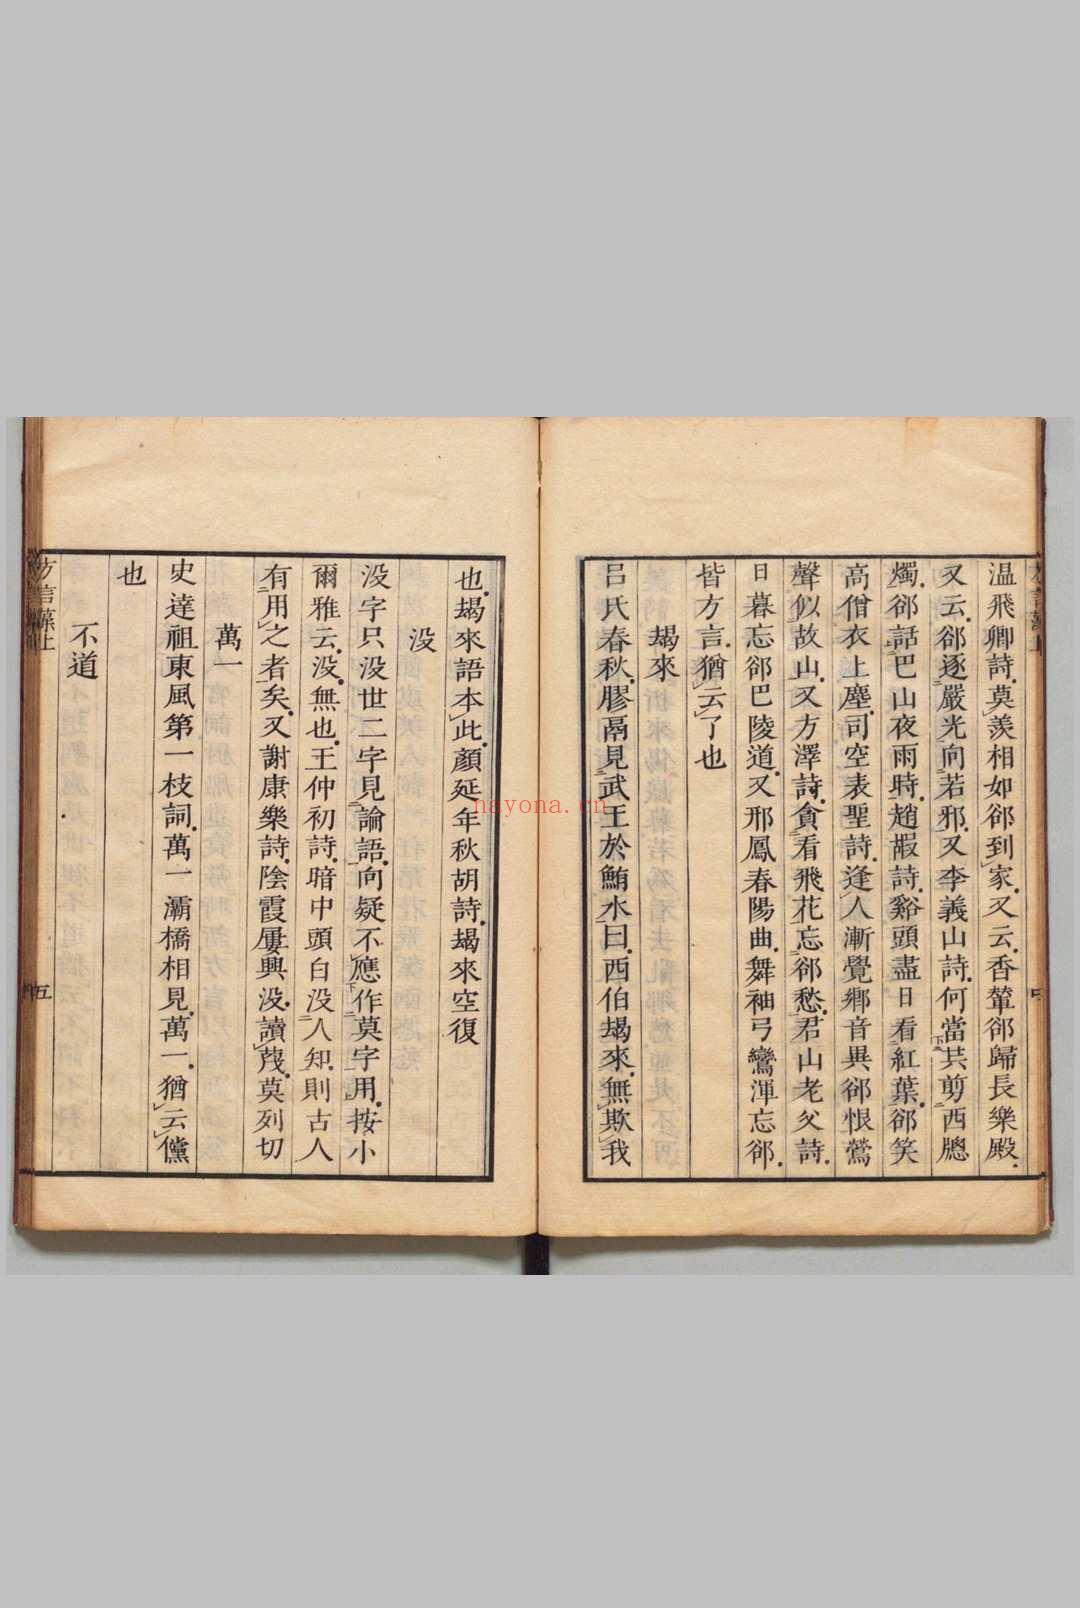 温飛卿詩莫羨相如郤到家又云香輦郤歸長樂殿
又云郤逐嚴光向若邪又李義山詩何當共剪西牕
燭郤話巴山夜雨時趙嘏詩谿頭盡日看紅葉郤笑
高僧衣上塵司空表聖詩逢人漸覺鄉音異郤恨鶯
聲似故山又方澤詩貪看飛花忘郤愁君山老父詩
日暮忘郤巴陵道又邢鳳春陽曲舞袖弓彎渾忘郤
皆方言猶云了也
朅來
呂氏春秋膠鬲見武王於鮪水曰西伯朅來無欺我
也朅來語本此顏延年秋胡詩朅來空復
没
没字只没世二字見論語向疑不應作莫字用按小
爾雅云没無也王仲初詩暗中頭白没人知則古人
有用之者矣又謝康樂詩陰霞屢興没讀蔑莫列切
萬一
史達祖東風第一枝詞萬一灞橋相見萬一猶云儻
也
不道
方言藻上
五
nayona.cn